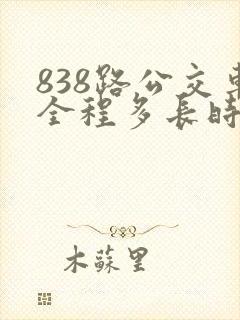 838路公交車
全程多長時
木蘇里